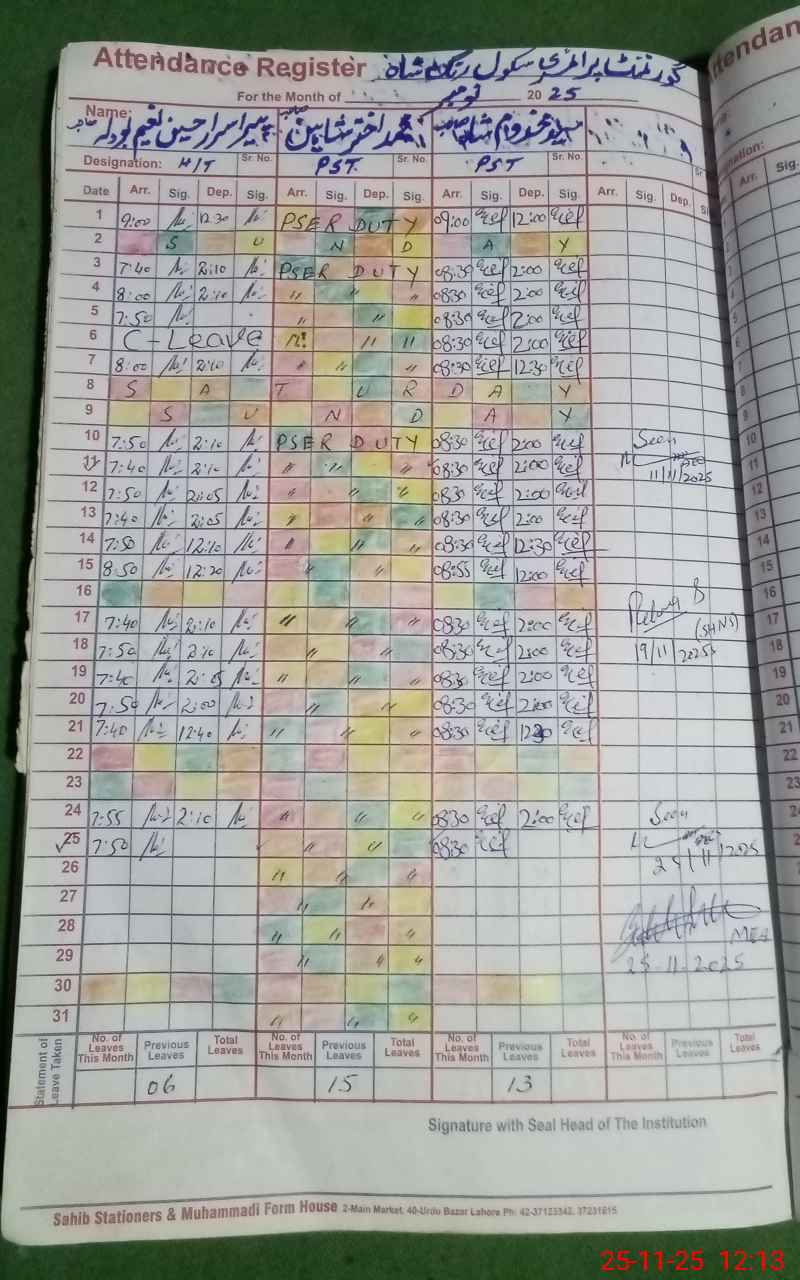 Attendance Register گورنمنٹ پرائمری سکول رنگ شاہ
For the Month of نومبر 20 25
Name: پیر اسرار حسین نعیم بودلہ صاحب محمد اختر شاہین صاحب سید مخدوم شاہ صاحب
Designation: H/T Sr. No. PST Sr. No. PST Sr. No.
Date Arr. Sig. Dep. Sig. Arr. Sig. Dep. Sig. Arr. Sig. Dep. Sig. Arr. Sig. Dep.
1 9:00 12:30 PSER DUTY 09:00 12:00
2 S U N D A Y
3 7:40 2:10 PSER DUTY 08:30 2:00
4 8:00 2:10 " " " 08:30 2:00
5 7:50 " " " 08:30 2:00
6 C-Leave " " 08:30 2:00
7 8:00 2:10 " " " 08:30 12:30
8 S A T U R D A Y
9 S U N D A Y
10 7:50 2:10 PSER DUTY 08:30 2:00 Seen
11 7:40 2:10 " " " 08:30 2:00 11/11/2025
12 7:50 2:05 " " " 08:30 2:00
13 7:40 2:05 " " " 08:30 2:00
14 7:50 12:10 " " " 08:30 12:30
15 8:50 12:20 " " " 08:55 12:00
16
17 7:40 2:10 " " " 08:30 2:00 (SHNS)
18 7:50 2:10 " " " 08:30 2:00 19/11/2025
19 7:40 2:05 " " " 08:30 2:00
20 7:50 2:00 " " " 08:30 2:00
21 7:40 12:40 " " " 08:30 1230
22
23
24 7:55 2:10 " " " 08:30 2:00 Seen
25 7:50 " " " 08:30 25/11/2025
26 " " "
27 " " "
28 " " " MEA
29 " " " 25-11-2025
30
31 " " "
Statement of Leave Taken No. of Leaves This Month Previous Leaves Total Leaves No. of Leaves This Month Previous Leaves Total Leaves No. of Leaves This Month Previous Leaves Total Leaves No. of Leaves This Month Previous Leaves Total Leaves
06 15 13
Signature with Seal Head of The Institution
Sahib Stationers & Muhammadi Form House 2-Main Market, 40-Urdu Bazar Lahore Ph: 42-37123342, 37231615
25-11-25 12:13